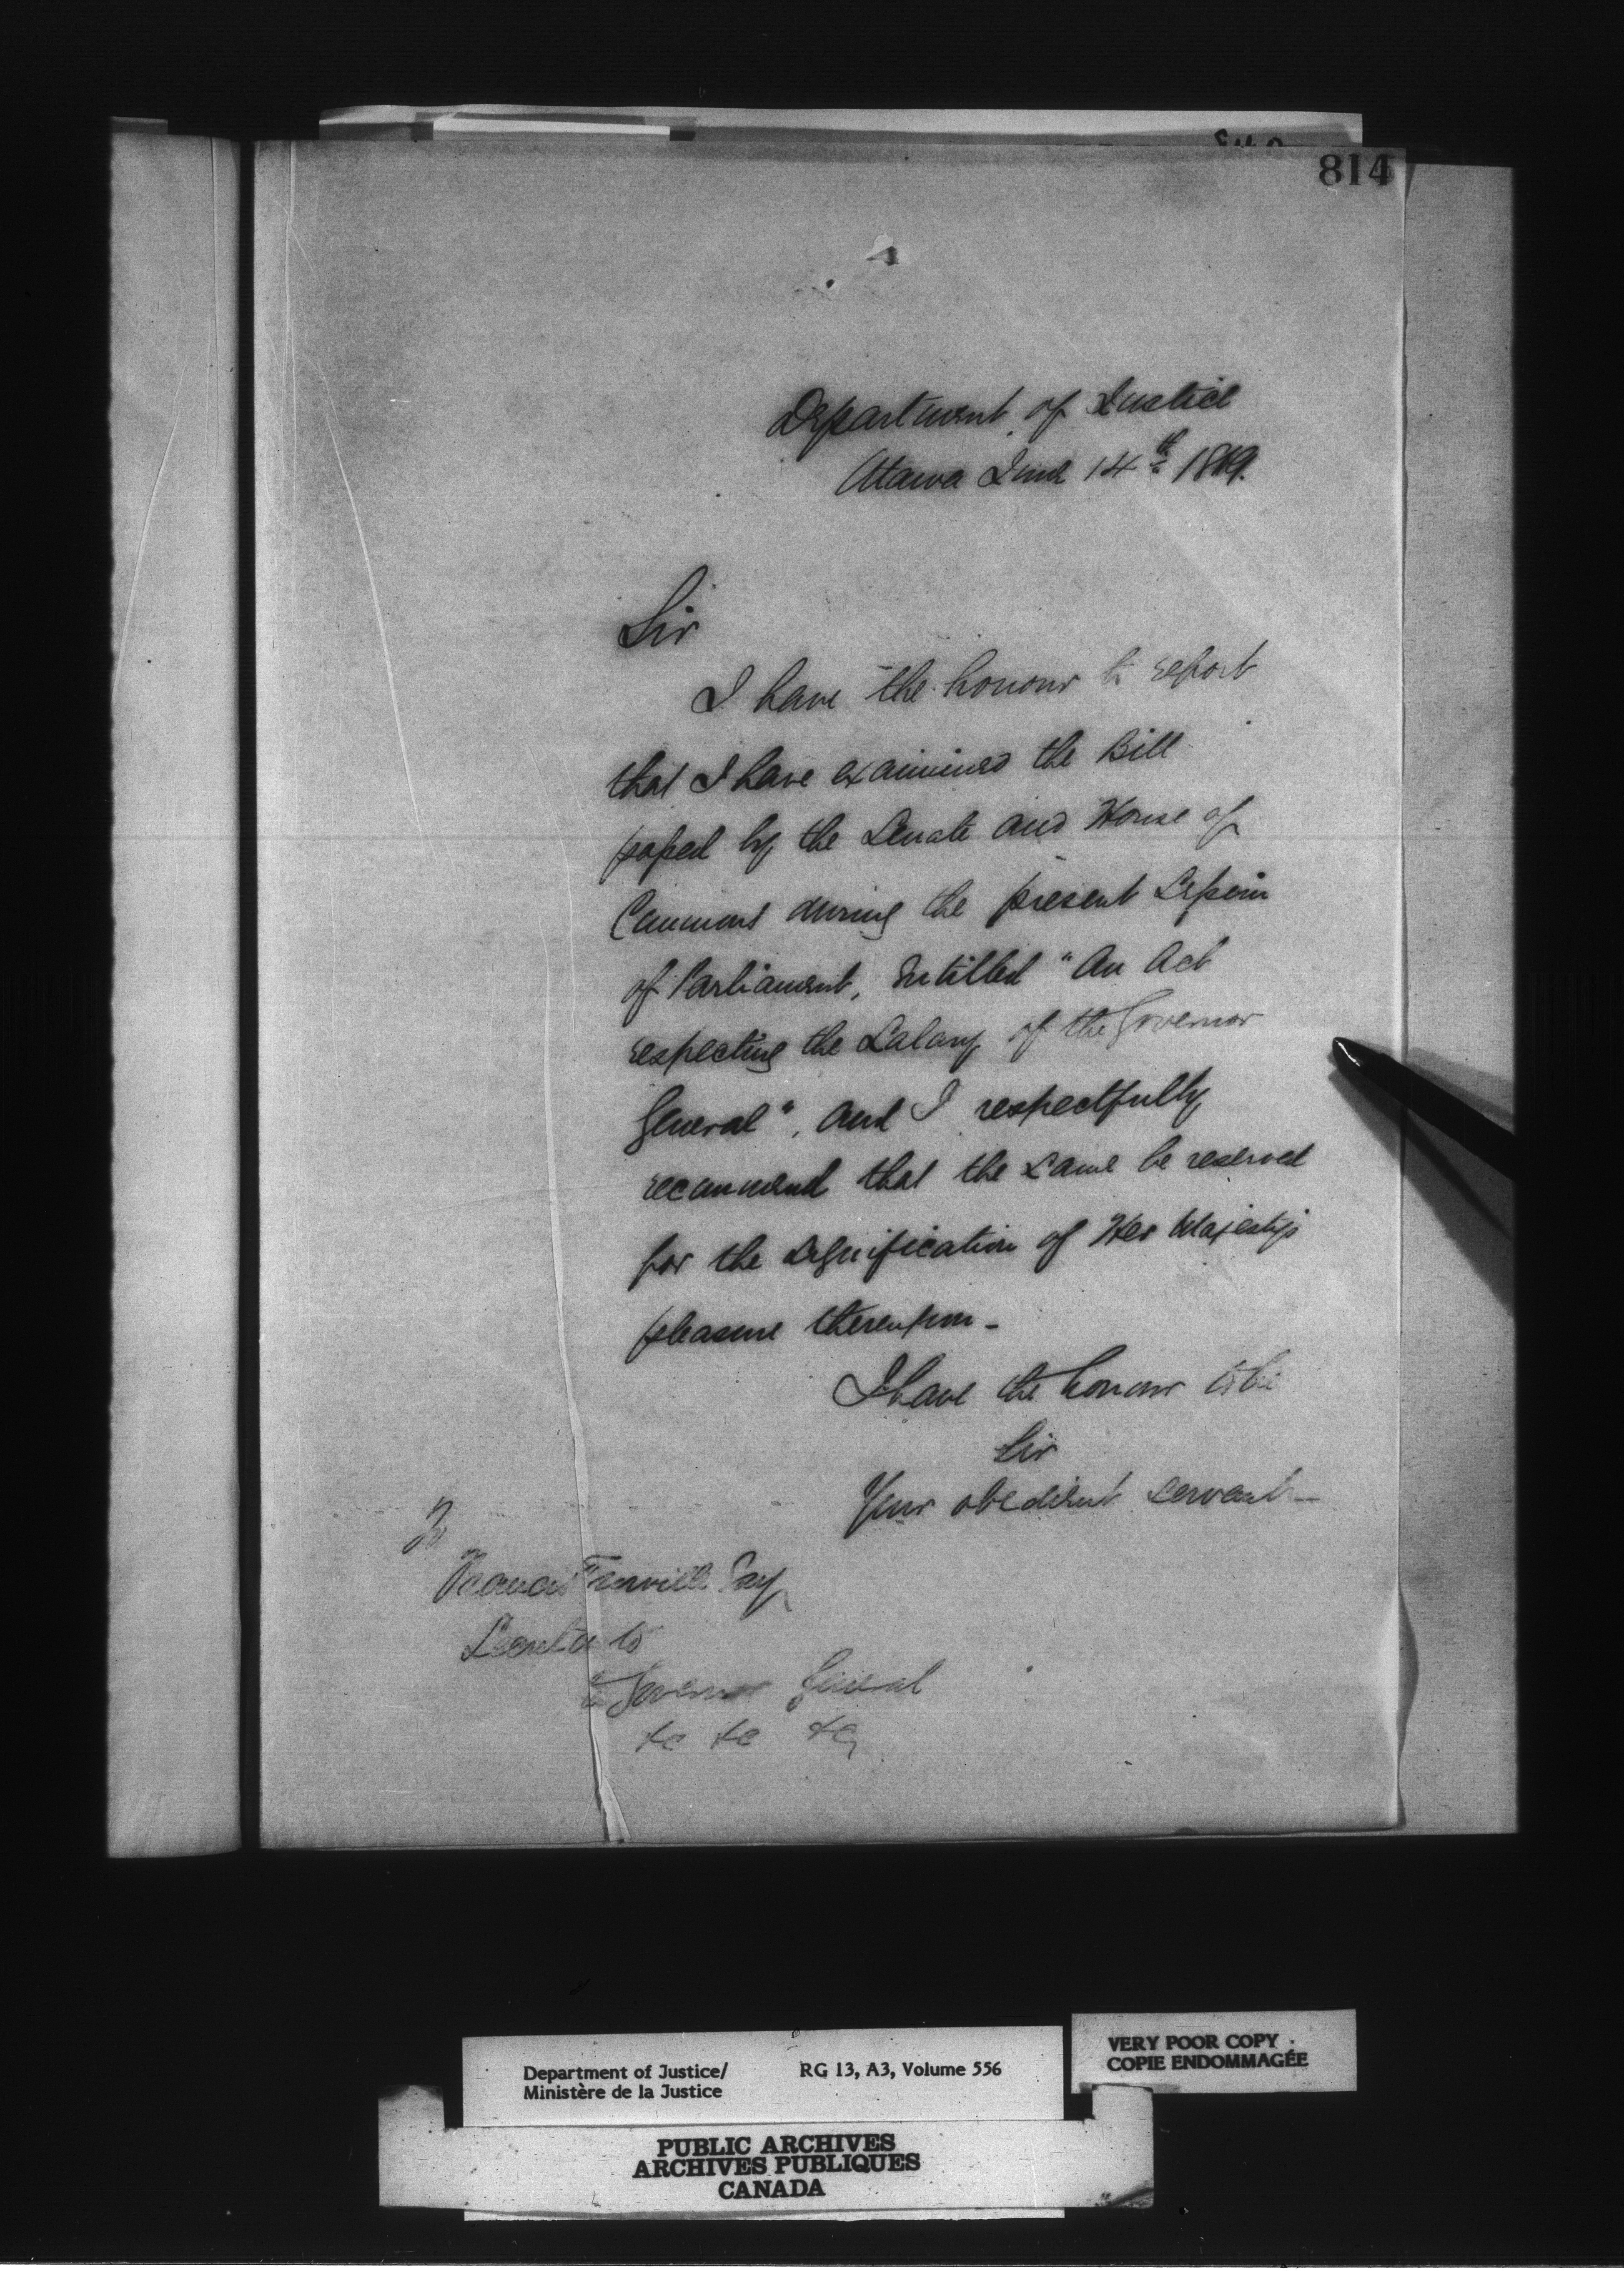 814
Department of Justice
Ottawa June 14th 1869.
Sir
I have the honour to report
that I have examined the Bill
passed by the Senate and House of
Commons during the present Session
of Parliament, Entitled "An Act
respecting the Salary of the Governor
General", and I respectfully
recommend that the same be reserved
for the signification of Her Majesty's
pleasure thereupon -
I have the honour to be
Sir
Your obedient servant -
To
Francis Turville Esq
Secretary to
the Governor General
&c &c &c
Department of Justice/
Ministère de la Justice
RG 13, A3, Volume 556
VERY POOR COPY
COPIE ENDOMMAGÉE
PUBLIC ARCHIVES
ARCHIVES PUBLIQUES
CANADA